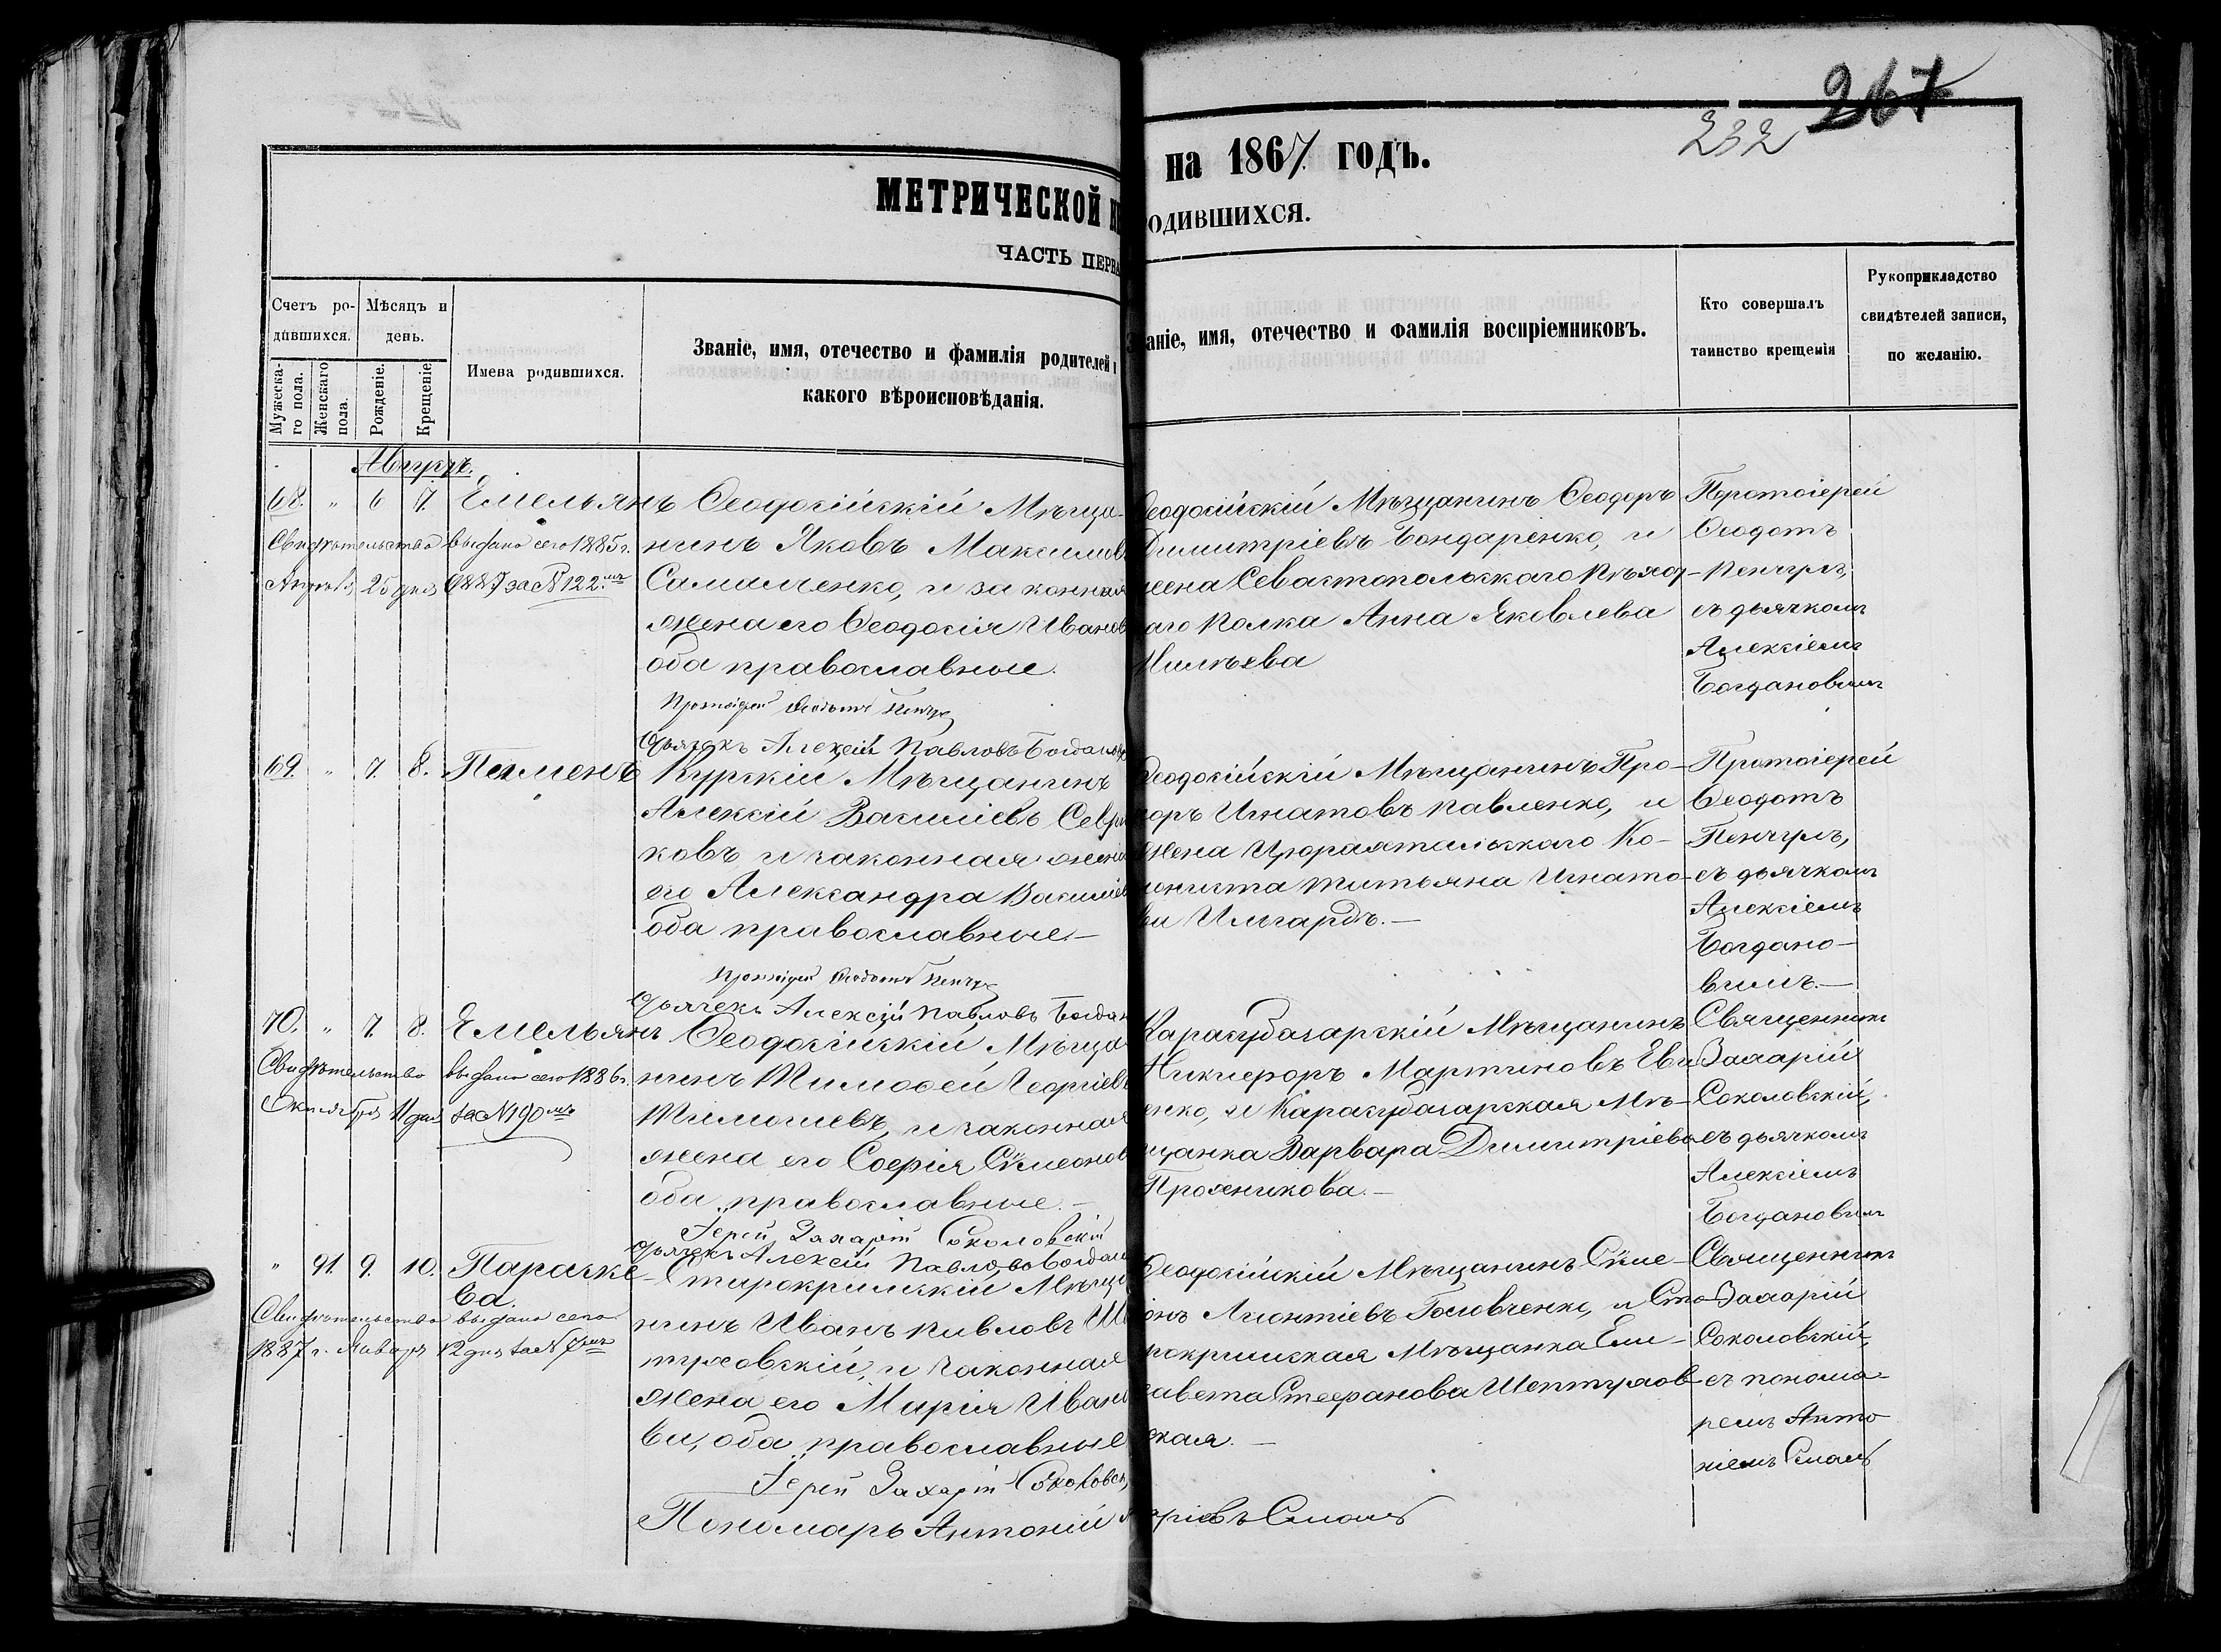 267
232
МЕТРИЧЕСКОЙ
на 1867 ГОДЪ.
ЧАСТЬ ПЕРВА
ОДИВШИХСЯ.
Счетъ ро-
дившихся.
Мужеска-
го пола.
Женскаго
пола.
Мѣсяцъ и
день.
Рожденіе.
Крещеніе.
Имена родившихся.
Званіе, имя, отечество и фамилія родителей и
какого вѣроисповѣданія.
аніе, имя, отечество и фамилія воспріемниковъ.
Кто совершалъ
таинство крещенія
Рукоприкладство
свидѣтелей записи,
по желанію.
Августъ.
68. " 6 7. Емельянъ
Свидѣтельство выдано сего 1885 г.
Апрѣля 25 дня за № 122.мъ
Ѳеодосійскій Мѣща-
нинъ Яковъ Максимов
и законная
жена его Ѳеодосія Иванов
оба православные.
Протоіерей Ѳеодотъ Пенчулъ
Дьячекъ Алексій Павловъ Богданов
Ѳеодосійскій Мѣщанинъ Ѳеодоръ
Димитріевъ Бондаренко, и
жена Севастопольскаго Пѣхот-
наго Полка Анна Яковлева
Протоіерей
Ѳеодотъ
Пенчулъ,
съ дьячкомъ
Алексіемъ
Богдановымъ
69. " 7. 8. Пименъ
Курскій Мѣщанинъ
Алексій Василіевъ Севрю
ковъ и законная жена
его Александра Василіев
оба православные.—
Протоіерей Ѳеодотъ Пенчулъ
Дьячекъ Алексій Павловъ Богдан
Ѳеодосійскій Мѣщанинъ Про-
хоръ Игнатовъ Павленко, и
жена Цюрихтальскаго Ко-
лониста Татьяна Игнато-
ва Ильгардъ.—
Протоіерей
Ѳеодотъ
Пенчулъ,
съ дьячкомъ
Алексіемъ
Богдано-
вымъ.—
70. " 7. 8. Емельянъ
Свидѣтельство выдано сего 1886 г.
Октября 11 дня за № 190мъ
Ѳеодосійскій Мѣща
нинъ Тимоѳей Георгіев
и законная
жена его Софія Симеонов
оба православные.—
Іерей Захарій Соколовскій
Дьячекъ Алексій Павловъ Богдан
Карасубазарскій Мѣщанинъ
Никифоръ Мартиновъ Ев
енко, и Карасубазарская Мѣ-
щанка Варвара Димитріева
Пряженикова.—
Священникъ
Захарій
Соколовскій,
съ дьячкомъ
Алексіемъ
Богдановымъ
" 91. 9. 10. Параске-
ва.
Свидѣтельство выдано сего
1887 г. Январ 12 дня за № 7мъ
Старокрымскій Мѣща
нинъ Иванъ Павловъ Ше
птуховскій, и законная
жена его Марія Иванo
ва, оба православные
Іерей Захарій Соколовск
Пономарь Антоній
Ѳеодосійскій Мѣщанинъ Симе-
онъ Леонтіевъ Головченко, и Ста-
рокрымская Мѣщанка Ели-
завета Стефанова Шептухов-
ская.—
ріевъ Смаль
Священникъ
Захарій
Соколовскій,
съ понома-
ремъ Анто
ніемъ Смаль